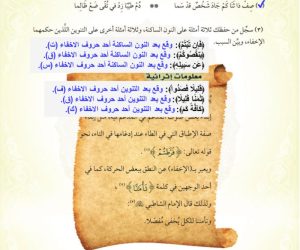 صِف ذَا ثَنَا كَمْ جَادَ شَخْصٌ قَدْ سَمَا ** دُمْ طَيِّبًا زِدْ فِي تُقًى ضَعْ ظَالِمَا
(٣) سجّل من حفظك ثلاثة أمثلة على النون الساكنة، وثلاثة أمثلة أخرى على التنوين اللَّذَين حكمهما
الإخفاء، وبيّن السبب.
(فَإِن تُبْتُمْ): وقع بعد النون الساكنة أحد حروف الاخفاء (ت).
(يَنقُصُوكُمْ): وقع بعد النون الساكنة أحد حروف الاخفاء (ق).
(عَن سَبِيلِهِ): وقع بعد النون الساكنة أحد حروف الاخفاء (س).
معلومات إثرائية
وقع بعد التنوين أحد حروف الاخفاء (ف).
(ثَمَنًا قَلِيلًا): وقع بعد التنوين أحد حروف الاخفاء (ق).
وقع بعد التنوين أحد حروف الاخفاء (ك).
صفة الإطباق التي في الطاء عند إدغامها في التاء، نحو
قوله تعالى: ﴿فَرَّطتُمْ﴾
ويعبر بـ(الإخفاء) عن النطق ببعض الحركة، كما في
أحد الوجهين في كلمة ﴿تَأْمَنَّا﴾
ولذلك قال الإمام الشاطبي
وتأمننا للكل يُخفى مُفصّلا.